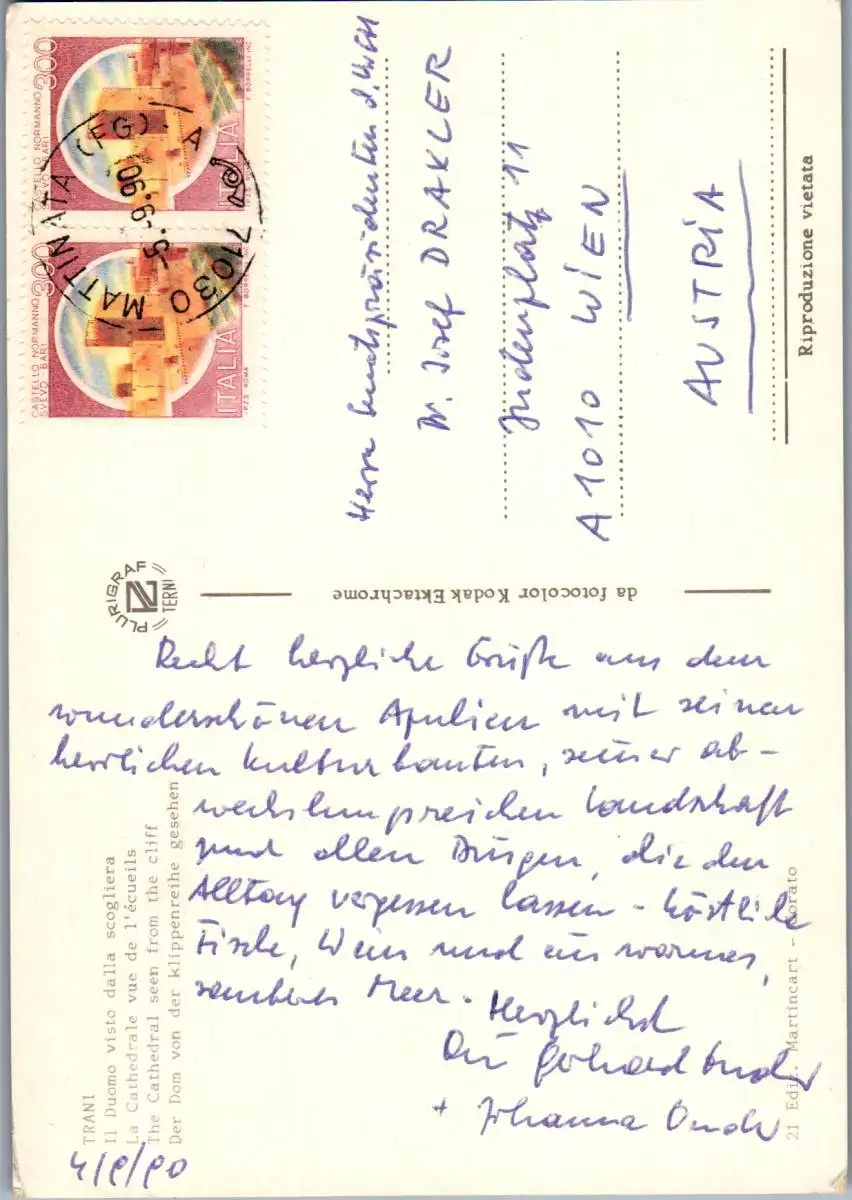 CASTELLO NORMANNO
SVEVO BARI
300
ITALIA
I.P.Z.S. ROMA
E. BORRELLI
CASTELLO NORMANNO
SVEVO BARI
300
ITALIA
E. BORRELLI INC.
71030 MATTINATA (FG) - A
-5.-9.90
Herrn Senatspräsidenten d. VwGH
Dr. Josef DRAXLER
Judenplatz 11
A 1010 WIEN
AUSTRIA
Riproduzione vietata
PLURIGRAF
TERNI
da fotocolor Kodak Ektachrome
Recht herzliche Grüße aus dem
wunderschönen Apulien mit seinen
herrlichen Kulturbauten, seiner ab-
wechslungsreichen Landschaft
und allen Dingen, die den
Alltag vergessen lassen - köstliche
Fische, Wein und ein warmes,
sauberes Meer.
Herzlichst
Dein Gerhard
+ Johanna
TRANI
Il Duomo visto dalla scogliera
La Cathedrale vue de l'écueils
The Cathedral seen from the cliff
Der Dom von der klippenreihe gesehen
4/9/90
21 Ediz. Martincart -